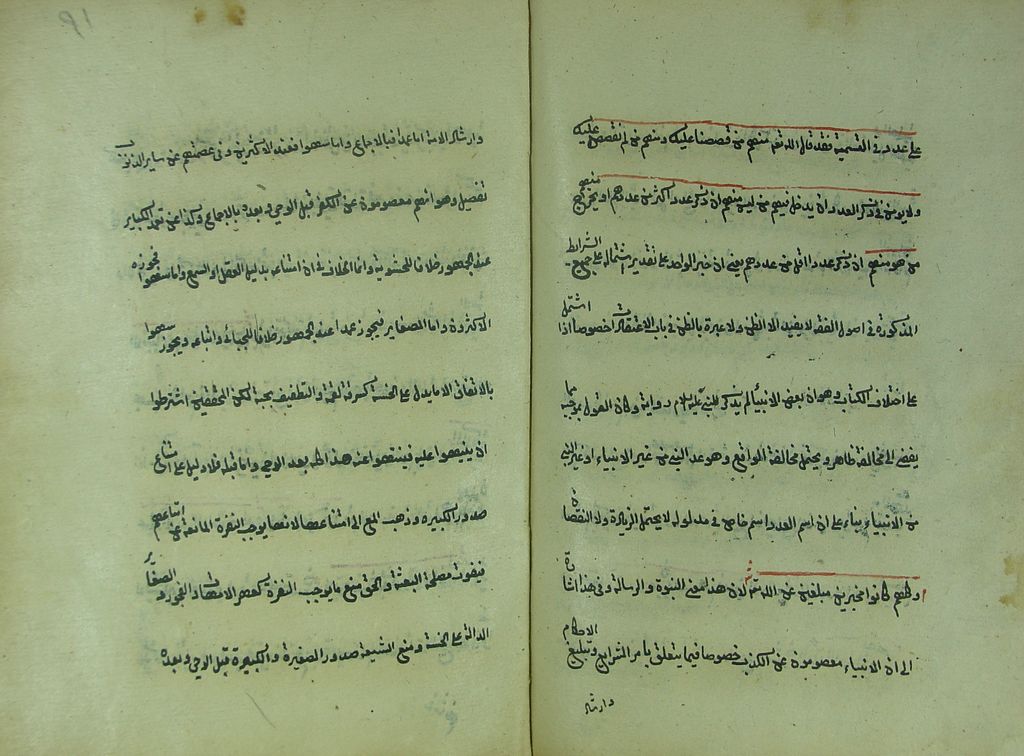 على عدد فى التسمية فقد قال الله تعالى منهم من قصصنا عليك ومنهم من لم نقصص عليك
ولا يؤمن فى ذكر العدد ان يدخل فيهم من ليس منهم ان ذكر عدد اكثر من عددهم او يخرج منهم
من هو منهم ان ذكر عددا اقل من عددهم يعنى ان خبر الواحد على تقدير اشتماله على جميع الشرايط
المذكورة فى اصول الفقه لا يفيد الا الظن ولا عبرة بالظن فى باب الاعتقادات خصوصا اذا اشتمل
على اختلاف الكتاب وهو ان بعض الانبياء لم يذكر للنبى عليه السلام رواية وكان القول بموجبه مما
يفضى الى مخالفة ظاهر ويحتمل مخالفة الواقع وهو عد النبى من غير الانبياء او غير النبى
من الانبياء بناء على ان اسم العدد اسم خاص فى مدلوله لا يحتمل الزيادة ولا النقصان
وكلهم كانوا مخبرين مبلغين عن الله تعالى لان هذا معنى النبوة والرسالة وفى هذا اشارة
الى ان الانبياء معصومون عن الكذب خصوصا فيما يتعلق بامر الشرايع وتبليغ الاحكام
وارشاد
وارشاد الامة اما عمدا فبالاجماع واما سهوا فعند الاكثرين وفى عصمتهم عن ساير الذنوب
تفصيل وهو انهم معصومون عن الكفر قبل الوحى وبعده بالاجماع وكذا عن تعمد الكباير
عند الجمهور خلافا للحشوية وانما الخلاف فى ان امتناعه بدليل العقل او السمع واما سهوا فجوزه
الاكثرون واما الصغاير فيجوز عمدا عند الجمهور خلافا للجبائى واتباعه ويجوز سهوا
بالاتفاق الا ما يدل على الخسة كسرقة لقمة والتطفيف بحبة لكن المحققين اشترطوا
ان ينبهوا عليه فينتهوا عنه هذا كله بعد الوحى واما قبله فلا دليل على امتناع
صدور الكبيرة وذهب المعتزلة الى امتناعها لانها يوجب النفرة المانعة عن اتباعهم
فيفوت مصلحة البعثة والحق منع ما يوجب النفرة كعهر الامهات والفجور والصغاير
الدالة على الخسة ومنع الشيعة صدور الصغيرة والكبيرة قبل الوحى وبعده